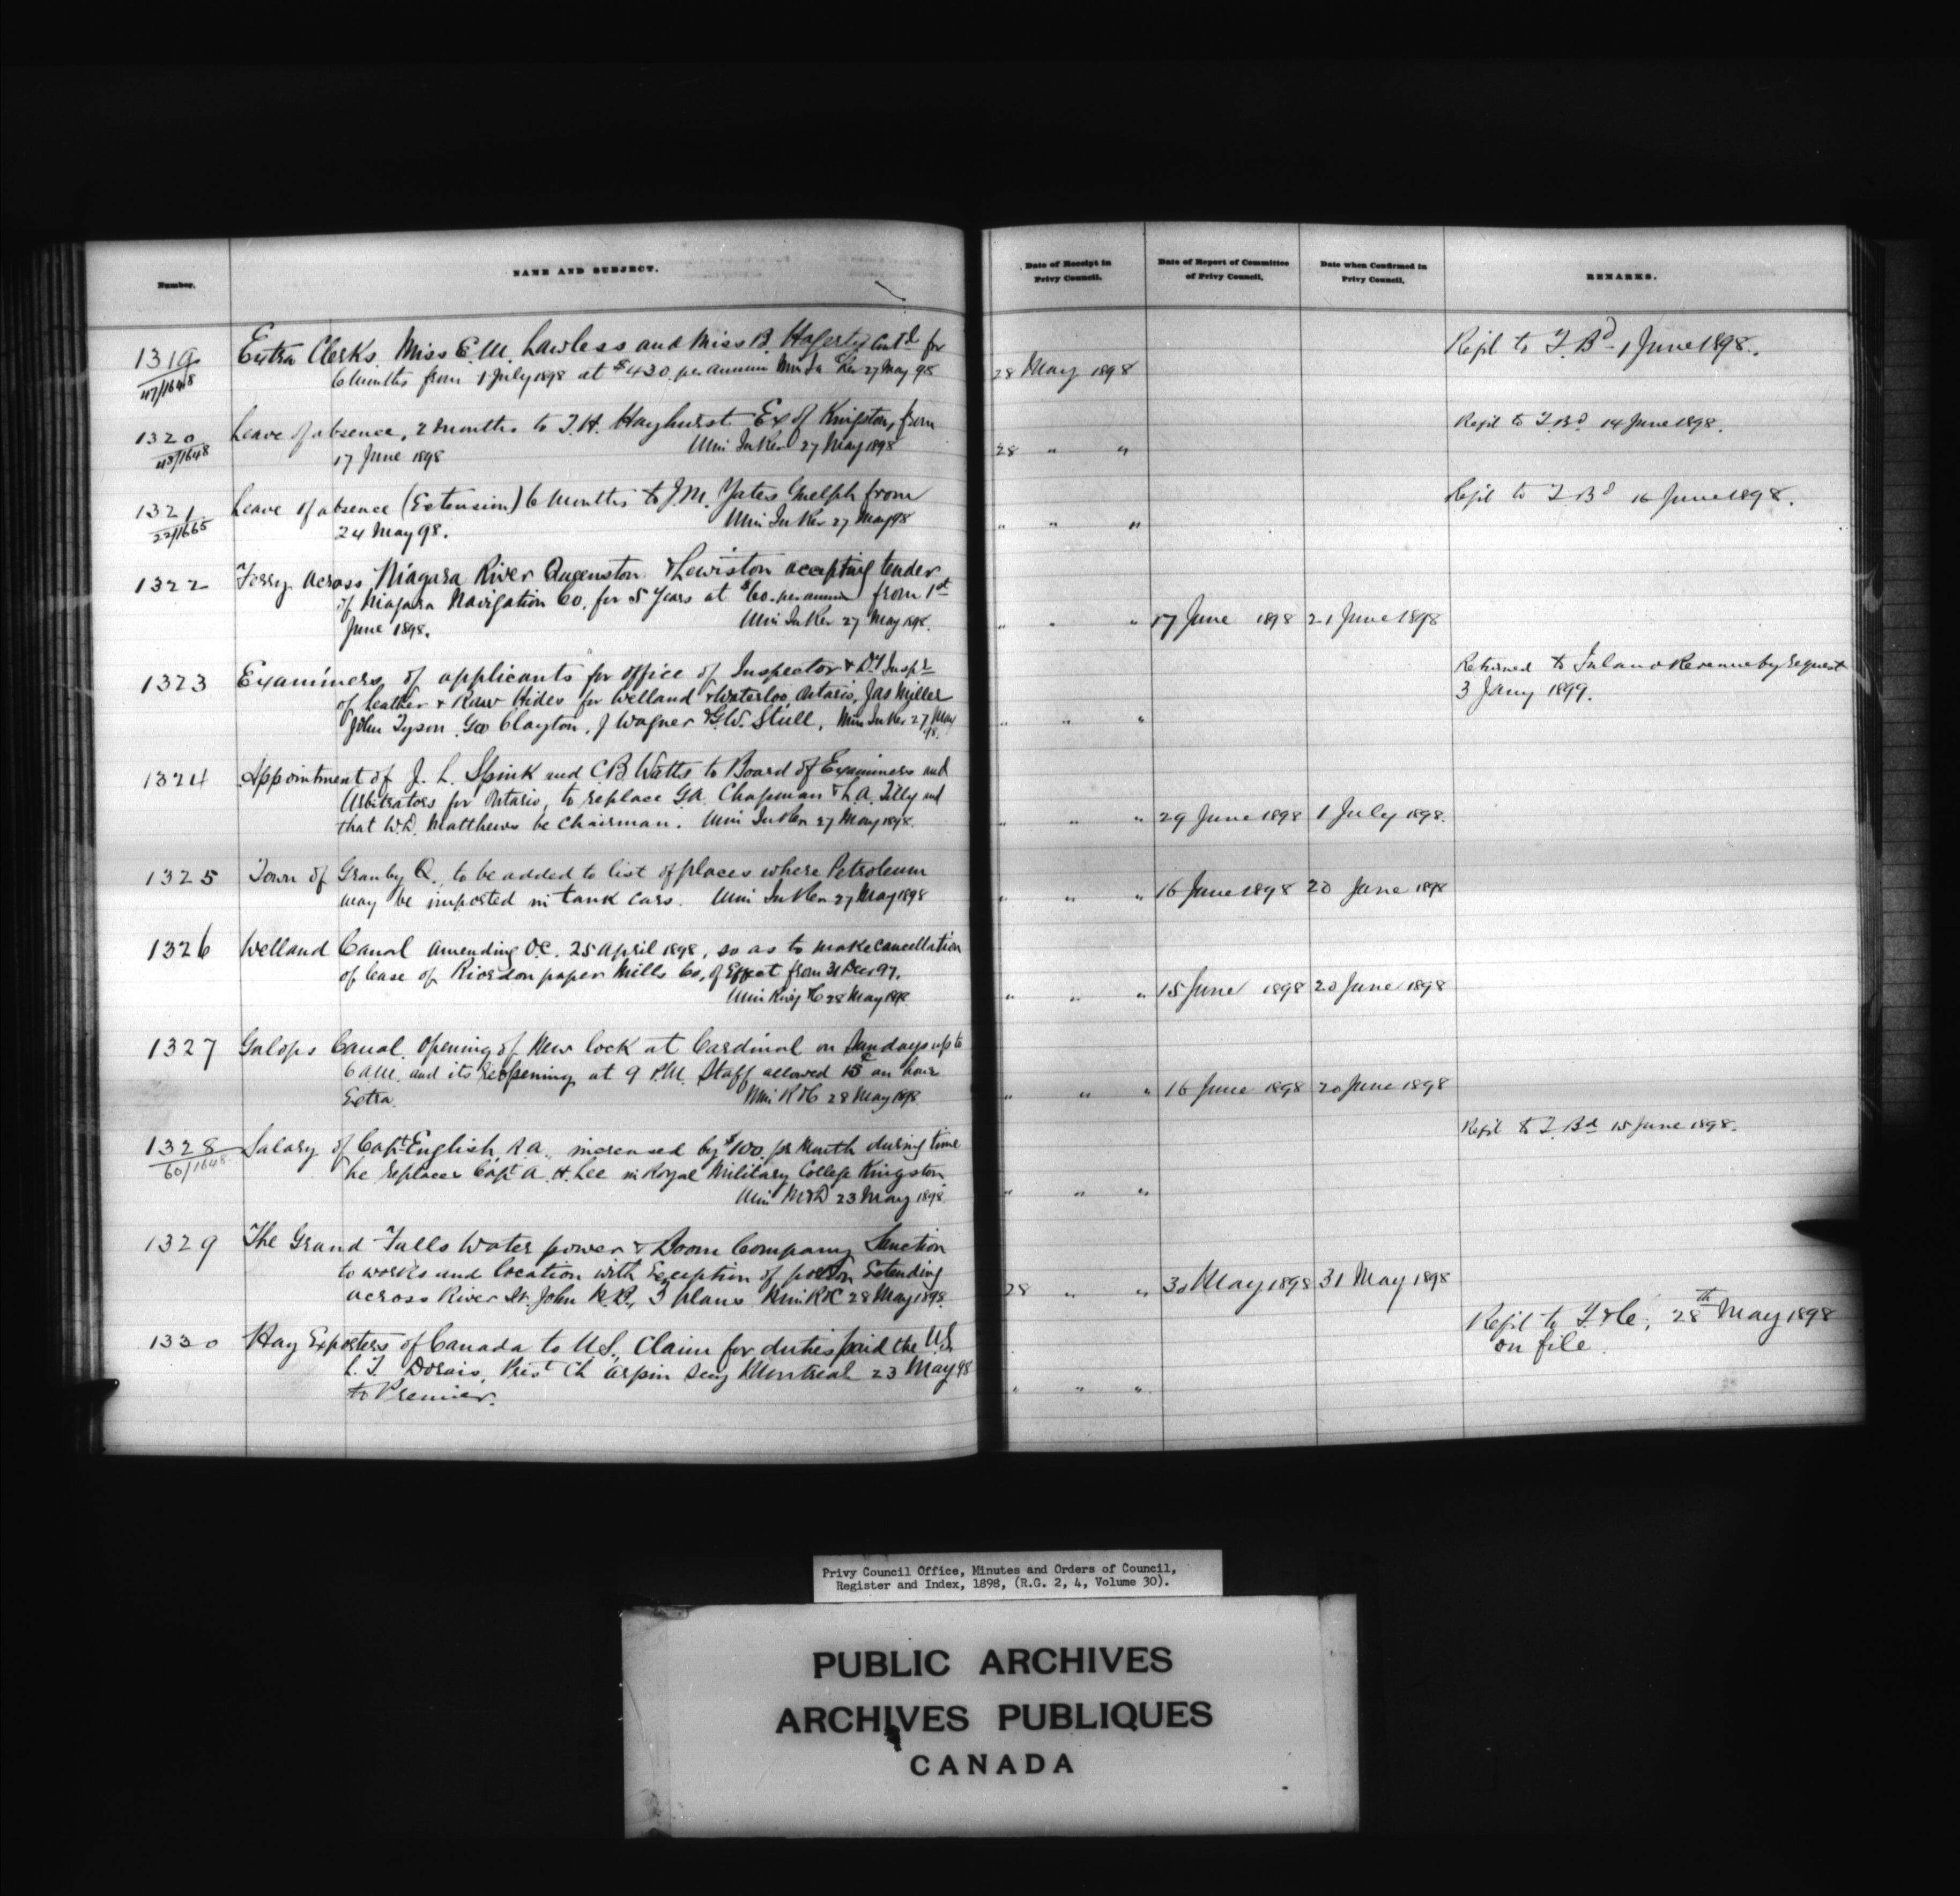 Number.
NAME AND SUBJECT.
Date of Receipt in
Privy Council.
Date of Report of Committee
of Privy Council.
Date when Confirmed in
Privy Council.
REMARKS.
1319
47/1648
Extra Clerks Miss E.M. Lawless and Miss B. Hagerty Contd for
6 Months from 1 July 1898 at $430. per annum Min In Rev 27 May 98
28 May 1898
Refd to T. Bd - 1 June 1898.
1320
48/1648
Leave of absence, 2 months to T.H. Hayhurst Ex of Kingston, from
17 June 1898 Min In Rev 27 May 1898
28 " "
Refd to T. Bd 14 June 1898.
1321
22/1665
Leave of absence (Extension) 6 months to J.M. Yates Guelph from
24 May 98. Min In Rev 27 May 98
" " "
Refd to T. Bd 16 June 1898.
1322
Ferry across Niagara River Queenston & Lewiston accepting tender
of Niagara Navigation Co. for 5 Years at $60. per annum from 1st
June 1898. Min In Rev 27 May 1898.
" " " 17 June 1898 21 June 1898
1323
Examiners of applicants for office of Inspector & Dy Inspr
of Leather & Raw Hides for Welland & Waterloo, Ontario, Jas Miller
John Tyson, Geo Clayton, J Wagner & G.W. Stull, Min In Rev 27 May
98.
" " "
Returned to Inland Revenue by request
3 Jany 1899.
1324
Appointment of J. L. Spink and C.B. Watts to Board of Examiners and
Arbitrators for Ontario, to replace G.A. Chapman & L.A. Tilly and
that W.D. Matthews be Chairman. Min In Rev 27 May 1898.
" " " 29 June 1898 1 July 1898.
1325
Town of Granby Q., to be added to list of places where Petroleum
may be imported in tank cars. Min In Rev 27 May 1898
" " " 16 June 1898 20 June 1898
1326
Welland Canal amending O.C. 25 April 1898, so as to make cancellation
of lease of Riordon paper Mills Co, of Effect from 31 Dec 97.
Min Rwys & C 28 May 1898
" " " 15 June 1898 20 June 1898
1327
Galops Canal. Opening of New lock at Cardinal on Sundays up to
6 AM. and its reopening at 9 P.M. Staff allowed 15c an hour
Extra. Min R & C 28 May 1898
" " " 16 June 1898 20 June 1898
1328
60/1648
Salary of Capt English, R.A., increased by $100. pr Month during time
he replaces Capt A. H. Lee in Royal Military College Kingston
Min M & D 23 May 1898
" " "
Refd to T. Bd 15 June 1898.
1329
The Grand Falls Water power & Boom Company Sanction
to works and location with Exception of portion Extending
across River St. John N.B., 3 plans Min R & C 28 May 1898.
28 " " 30 May 1898 31 May 1898
1330
Hay Exporters of Canada to U.S., Claim for duties paid the U.S.
L. T. Dorais, Prest Ch Arpin Secy Montreal 23 May 98
to Premier.
" " "
Refd to T & C, 28th May 1898
on file.
Privy Council Office, Minutes and Orders of Council,
Register and Index, 1898, (R.G. 2, 4, Volume 30).
PUBLIC ARCHIVES
ARCHIVES PUBLIQUES
CANADA